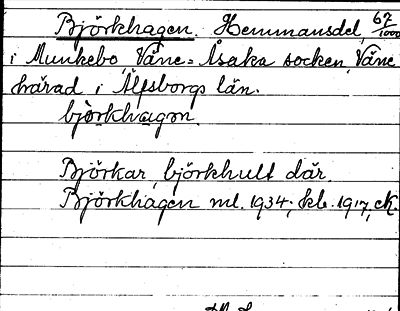 Björkhagen. Hemmansdel, 67/1000
i Munkebo, Väne=Åsaka socken, Väne
härad i Älfsborgs län.
bjòrkhagan.
Björkar, björkhult där.
Björkhagen ml. 1934; skb. 1917, ek.